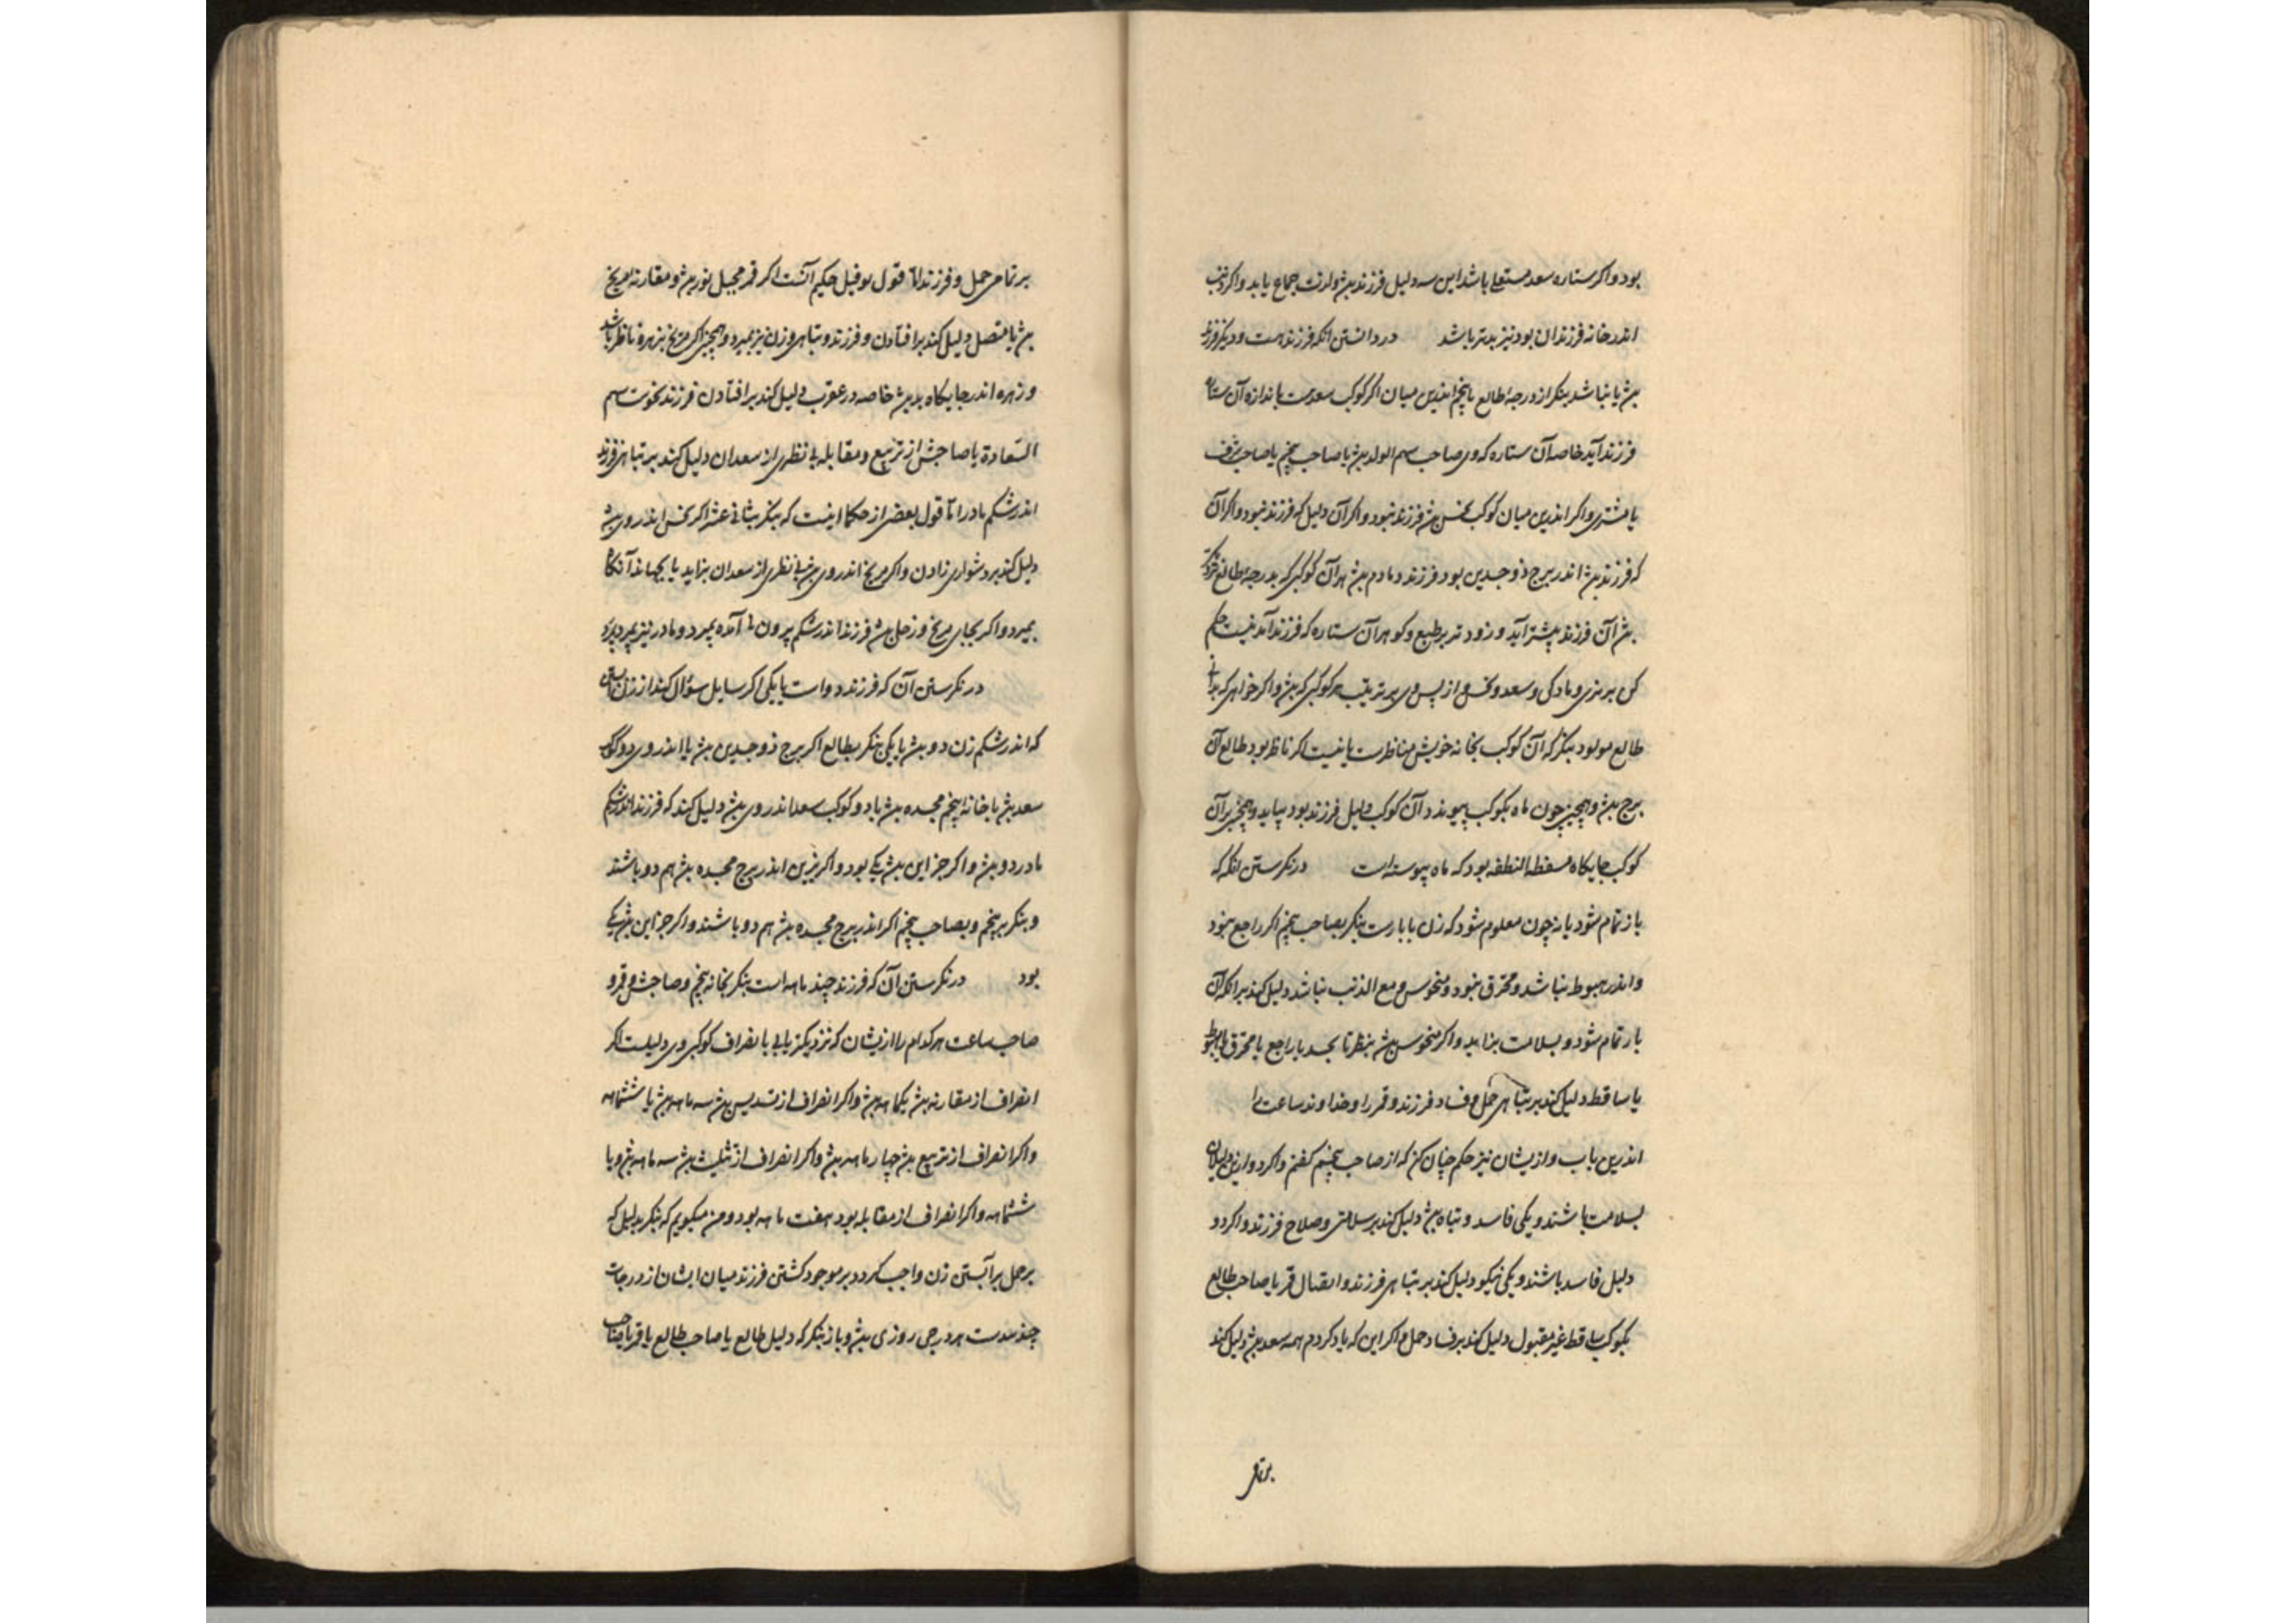 بود و اکر ستاره سعد مستعلی باشد این سه دلیل فرزند بیش ولذت جماع یابد و اکر ذنب
اندر خانه فرزندان بود نیز بدتر باشد در دانستن انکه فرزند هست و دیکر فرزند
بیش یا نباشد بنکر از درجهٔ طالع تا پنجم اندرین میان اکر کوکب سعدست باندازه آن ستاره
فرزند آید خاصه آن ستاره که وی صاحب سهم الولد بیش یا صاحب پنجم یا صاحب شرف
یا مشتری و اکر اندرین میان کوکب نحس بیش فرزند نبود و اکر آن دلیل که فرزند نبود و اکر آن
که فرزند بیش اندر برج ذو جدین بود فرزند دمادم بیش هر آن کوکبی که بدرجه طالع نزدیک
بیش آن فرزند پیشتر آید و زودتر بر طبع و کوهر آن ستاره که فرزند آمدنیست حکم
کن بر نری و مادکی و سعد و نحس و از پس وی بر ترتیب هر کوکبی که بیش و اکر خواهی که بدانی
طالع مولود بنکر که آن کوکب بخانه خویش مناظرست یا نیست اکر ناظر بود طالع آن
برج بیش و همچنین چون ماه بکوکب پیوندد آن کوکب دلیل فرزند بود بیاید و همچنین بر آن
کوکب جایکاه مسقط النطفه بود که ماه پیوسته است در نکرستن انکه که
بار تمام شود یا نه چون معلوم شود که زن با بارست بنکر بصاحب پنجم اکر راجع نبود
و اندر هبوط نباشد و محترق نبود و منحوس و مع الذنب نباشد دلیل کند بر انکه آن
بار تمام شود و بسلامت بزاید و اکر منحوس بیش بنظر تا بجسد یا راجع یا محترق یا هبوط
یا ساقط دلیل کند بر تباهی حمل و فساد فرزند و قمر را و خداوند ساعت را
اندرین باب و از یشان نیز حکم چنان کن که از صاحب پنجم کفتم و اکر دو ازین دلیلان
بسلامت باشند و یکی فاسد و تباه بیش دلیل کند بر سلامتی و صلاح فرزند و اکر دو
دلیل فاسد باشند و یکی نیکو دلیل کند بر تباهی فرزند و اتصال قمر یا صاحب طالع
بکوکب ساقط غیر مقبول دلیل کند بر فساد حمل و اکر این که یاد کردم همه سعد بیش دلیل کند
بر تمامی
بر تمامی حمل و فرزند اما قول نوفیل حکیم آنست اکر قمر مجیل نور بیش و مقارنه مریخ
بیش یا متصل دلیل کند بر افتادن و فرزند و تباهی و زن نیز بمیرد و همچنین اکر مریخ بزهره ناظر باشد
و زهره اندر جایکاه بد بیش خاصه در عقرب دلیل کند بر افتادن فرزند نحوست سهم
السّعادة یا صاحبش از تربیع و مقابله بی نظری از سعدان دلیل کند بر تباهی فرزند
اندر شکم مادر امّا قول بعضی از حکما اینست که بنکر بثانی عشر اکر نحس اندر وی بیش
دلیل کند بر دشواری زادن و اکر مریخ اندر وی بیش بی نظری از سعدان بزاید یا بجهاند آنکاه
بمیرد و اکر بجای مریخ و زحل بیش فرزند اندر شکم بیرون نا آمده بمیرد و مادر نیز بمیرد بدرد
در نکرستن آن که فرزند دو است یا یکی اکر سایل سوال کند از زن آبستن
که اندر شکم زن دو بیش یا یکی بنکر بطالع اکر برج ذو جدین بیش یا اندر وی دو کوکب
سعد بیش یا خانه پنجم مجسده بیش یا دو کوکب سعد اندر وی بیش دلیل کند که فرزند اندر شکم
مادر دو بیش و اکر جز این بیش یکی بود و اکر نیرین اندر برج مجسده بیش هم دو باشند
و بنکر بپنجم و بصاحب پنجم اکر اندر برج مجسده بیش هم دو باشند و اکر جز این بیش یکی
بود در نکرستن آن که فرزند چند ماهه است بنکر بخانه پنجم و صاحبش و قمر و
صاحب ساعت هر کدام را از یشان که نزدیکتر یابی با نصراف کوکبی وی دلیلست اکر
انصراف از مقارنه بیش یکماهه بیش و اکر انصراف از تسدیس بیش سه ماهه بیش یا ششماهه
و اکر انصراف از تربیع بیش چهار ماهه بیش و اکر انصراف از تثلیث بیش سه ماهه بیش و یا
ششماهه و اکر انصراف از مقابله بود هفت ماهه بود و من میکویم که بنکر بدلیل که
بر حمل بر آبستن زن واجب کردد بر موجود کشتن فرزند میان ایشان از درجات
چند مدست هر درجی روزی بیش و باز بنکر که دلیل طالع یا صاحب طالع یا قمر یا صاحب